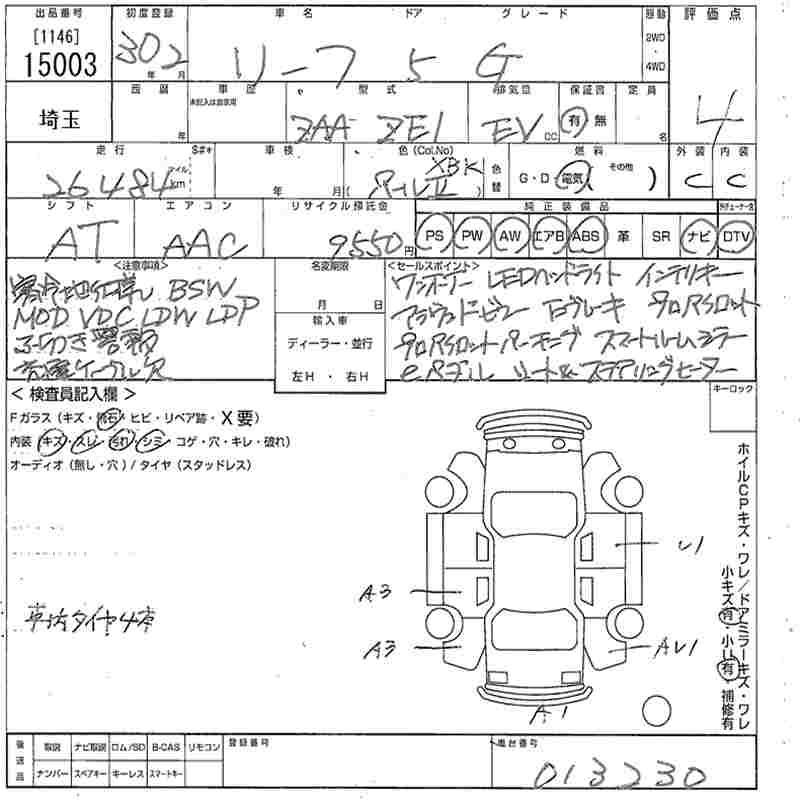 出品番号 初度登録 車名 ドア グレード 駆動 評価点
[1146] 15003 302 年 月 リーフ 5 G 2WD ・ 4WD 4
埼玉 年 車歴 型式 排気量 保証書 定員
未記入は自家用 ZAA ZE1 EV CC 有 無 名
走行 S#* 車検 色 (Col.No) 色替 燃料 外装 内装
26484 マイル km 年 月 ( パールⅡ XBK ) G・D・電気( その他 ) C C
シフト エアコン リサイクル預託金 純正装備品
AT AAC 9550円 PS PW AW エアB ABS 革 SR ナビ DTV
<注意事項> 名変期限 <セールスポイント>
寒冷地仕様 BSW 月 日 ワンオーナー LEDヘッドライト インテリキー
MOD VDC LDW LDP 輸入車 アラウンドビュー エマブレーキ プロパイロット
ディーラー・並行 プロパイロットパーキング スマートルームミラー
充電ケーブル欠 左H ・ 右H eペダル シート&ステアリングヒーター
<検査員記入欄> キーロック
Fガラス (キズ・飛石・ヒビ・リペア跡・X要)
内装 (キズ・スレ・汚れ・シミ・コゲ・穴・キレ・破れ)
オーディオ (無し・穴) / タイヤ (スタッドレス)
ホイルCPキズ・ワレ/ドアミラーキズ・ワレ
小キズ有・小U有・補修有
U1
A3
車坊タイヤ4本
A3 AU1
A1
後送品 取説 ナビ取説 ロム/SD B-CAS リモコン 登録番号 車台番号
ナンバー スペアキー キーレス スマートキー 013230